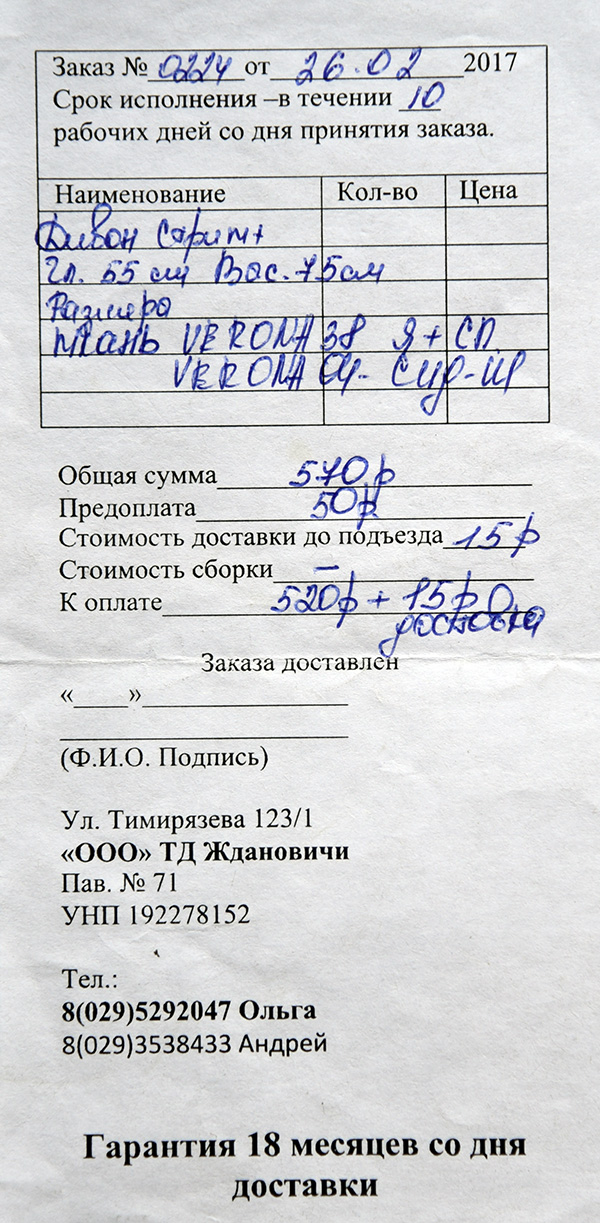 Заказ № 0224 от 26.02 2017
Срок исполнения –в течении 10
рабочих дней со дня принятия заказа.
Наименование Кол-во Цена
Диван
Гл. 55 см Выс. 75см
Размера
ткань VERONA 38 Я + СП
VERONA
Общая сумма 570 р
Предоплата 50р
Стоимость доставки до подъезда 15 р
Стоимость сборки –
К оплате 520р + 15р
доставка
Заказа доставлен
«____»
(Ф.И.О. Подпись)
Ул. Тимирязева 123/1
«ООО» ТД Ждановичи
Пав. № 71
УНП 192278152
Тел.:
8(029)5292047 Ольга
8(029)3538433 Андрей
Гарантия 18 месяцев со дня
доставки